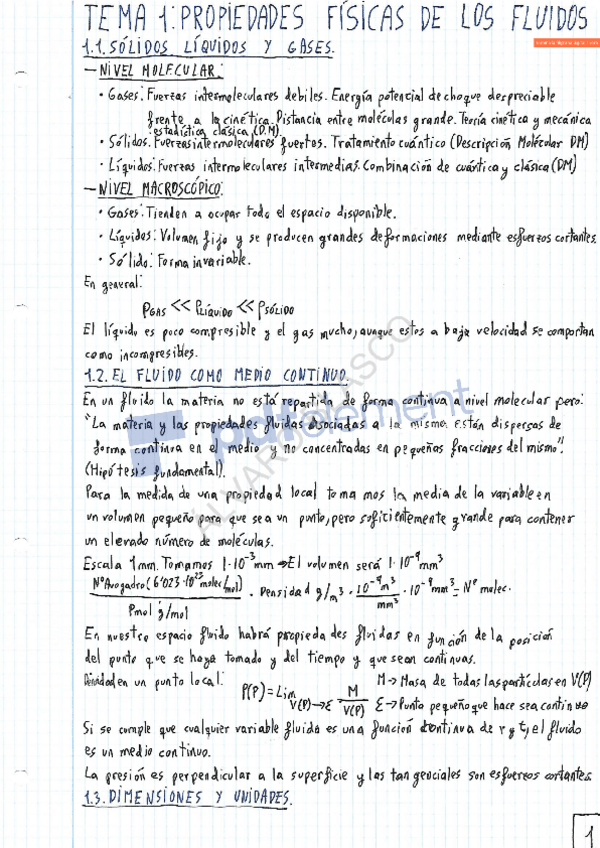 TEMA 1: PROPIEDADES FÍSICAS DE LOS FLUIDOS
1.1. SÓLIDOS LÍQUIDOS Y GASES.
- NIVEL MOLECULAR:
· Gases: Fuerzas intermoleculares debiles. Energía potencial de choque despreciable
frente a la cinética. Distancia entre moléculas grande. Teoría cinética y mecánica
estadística clásica (D.M)
· Sólidos: Fuerzas intermoleculares fuertos. Tratamiento cuántico (Descripción Molecular DM)
· Líquidos: Fuerzas intermoleculares intermedias. Combinación de cuántica y clásica (DM)
- NIVEL MACROSCÓPICO:
· Gases: Tienden a ocupar todo el espacio disponible.
· Líquidos: Volumen fijo y se producen grandes deformaciones mediante esfuerzos cortantes.
· Sólido: Forma invariable.
En general:
ρGAS << ρLÍQUIDO << ρSÓLIDO
El líquido es poco compresible y el gas mucho, aunque estos a baja velocidad se comportan
como incompresibles.
1.2. EL FLUIDO COMO MEDIO CONTINUO.
En un fluido la materia no está repartida de forma continua a nivel molecular pero:
"La materia y las propiedades fluidas asociadas a la misma están dispersas de
forma continua en el medio y no concentradas en pequeñas fracciones del mismo".
(Hipótesis fundamental).
Para la medida de una propiedad local tomamos la media de la variable en
un volumen pequeño para que sea un punto, pero suficientemente grande para contener
un elevado número de moléculas.
Escala 1mm. Tomamos 1·10⁻³mm → El volumen será 1·10⁻⁹mm³
NºAvogadro (6'023·10²³ molec/mol) / Pmol g/mol · Densidad g/m³ · 10⁻⁹m³/mm³ · 10⁻⁹mm³ = Nº molec.
En nuestro espacio fluido habrá propiedades fluidas en función de la posición
del punto que se haya tomado y del tiempo y que sean continuas.
Densidad en un punto local: ρ(P) = Lim V(P)→ε M/V(P)
M → Masa de todas las partículas en V(P)
ε → Punto pequeño que hace sea continuo
Si se cumple que cualquier variable fluida es una función continua de r y t, el fluido
es un medio continuo.
La presión es perpendicular a la superficie y las tangenciales son esfuerzos cortantes.
1.3. DIMENSIONES Y UNIDADES.
1
ÁLVARO
ASCO
pdfelement